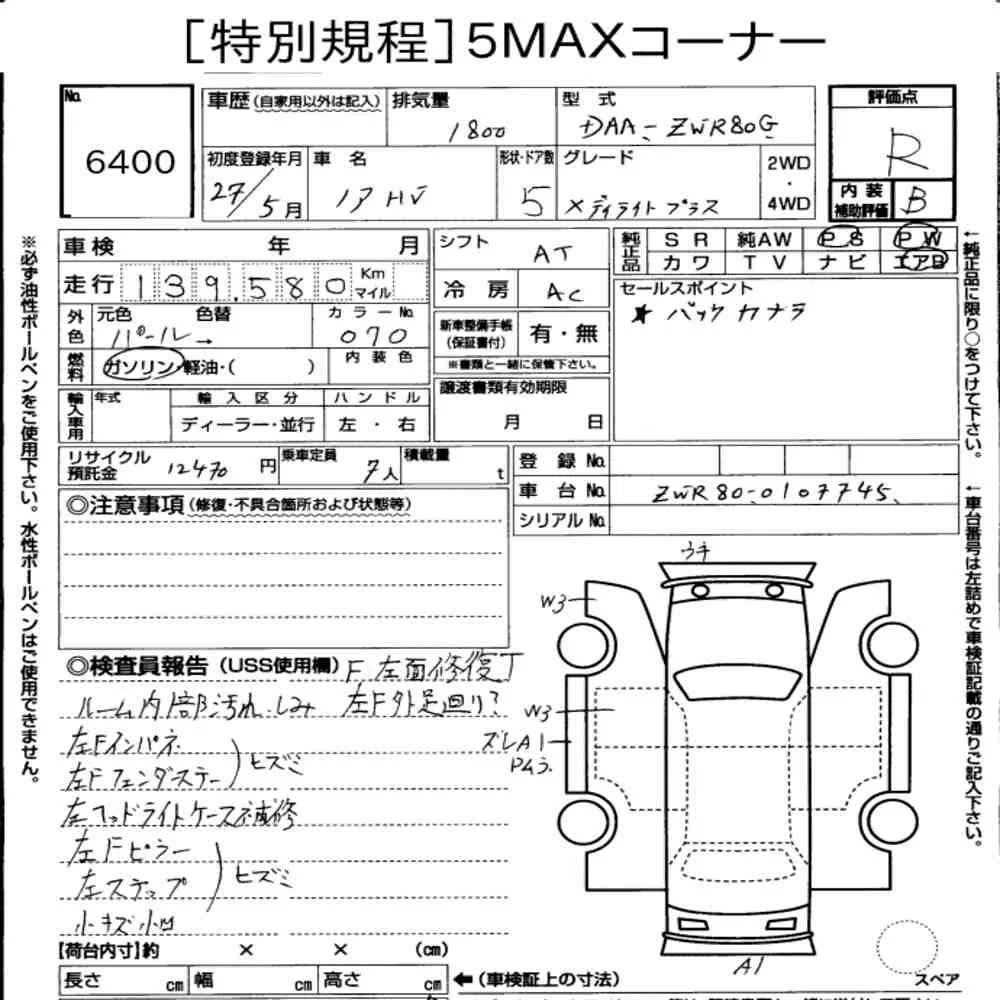 [特別規程]5MAXコーナー
No.
6400
車歴(自家用以外は記入)
排気量
1800
型 式
DAA-ZWR80G
評価点
R
初度登録年月
27/5月
車 名
ノア HV
形状・ドア数
5
グレード
×ディライトプラス
2WD
・
4WD
内装
補助評価
B
車検 年 月
シフト
AT
純正品
SR
純AW
PS
PW
カワ
TV
ナビ
エアB
走行
139.580
Km
マイル
冷房
AC
セールスポイント
★ バックカメラ
外色
元色 色替
パール→
カラーNo.
070
新車整備手帳
(保証書付)
有・無
※書類と一緒に保管下さい。
燃料
ガソリン・軽油・( )
内装色
譲渡書類有効期限
月 日
輸入車用
年式
輸入区分
ハンドル
ディーラー・並行
左・右
リサイクル
預託金
12470 円
乗車定員
7人
積載量
t
登録No.
車台No.
ZWR80-0107745
シリアルNo.
◎注意事項(修復・不具合箇所および状態等)
◎検査員報告(USS使用欄)
F、左面修復丁
ルーム内部汚れ しみ 左F外足廻り?
左Fインパネ
左Fフェンダステー
ヒズミ
左ヘッドライトケース補修
左Fピラー
左ステップ
ヒズミ
小キズ小凹
【荷台内寸】約 × × (cm)
長さ cm
幅 cm
高さ cm
←(車検証上の寸法)
ウチ
W3
W3
ズレA1
A1
スペア
※必ず油性ボールペンをご使用下さい。水性ボールペンはご使用できません。
←純正品に限り○をつけて下さい。
←車台番号は左詰めで車検証記載の通りご記入下さい。